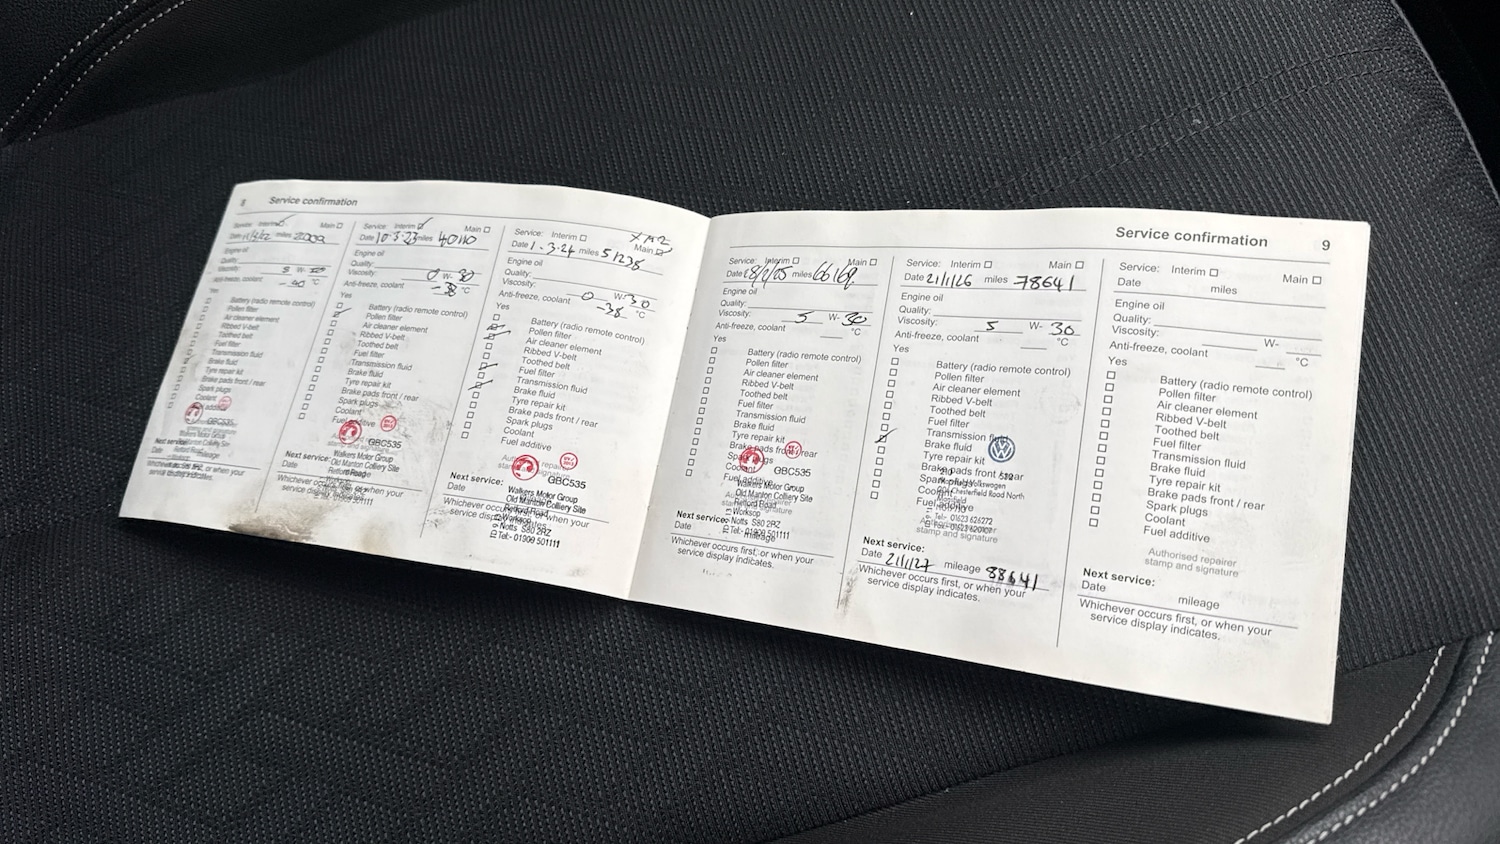 8 Service confirmation
Service: Interim Main
Date miles
Engine oil
Quality:
Viscosity: W-
Anti-freeze, coolant °C
Yes
Battery (radio remote control)
Pollen filter
Air cleaner element
Ribbed V-belt
Toothed belt
Fuel filter
Transmission fluid
Brake fluid
Tyre repair kit
Brake pads front / rear
Spark plugs
Coolant
GBC535
Walkers Motor Group
Old Manton Colliery Site
Retford Road
Next service:
Date
Whichever occurs first, or when your
service display indicates.
Service: Interim Main
Date 10.3.23 miles 40110
Engine oil
Quality:
Viscosity: 0 W- 30
Anti-freeze, coolant -38 °C
Yes
Battery (radio remote control)
Pollen filter
Air cleaner element
Ribbed V-belt
Toothed belt
Fuel filter
Transmission fluid
Brake fluid
Tyre repair kit
Brake pads front / rear
Spark plugs
Coolant
Fuel additive
GBC535
Walkers Motor Group
Old Manton Colliery Site
Retford Road
Next service:
Date
Whichever occurs first, or when your
service display indicates.
Service: Interim Main
Date 1.3.24 miles 51238
Engine oil
Quality:
Viscosity: 0 W- 30
Anti-freeze, coolant -38 °C
Yes
Battery (radio remote control)
Pollen filter
Air cleaner element
Ribbed V-belt
Toothed belt
Fuel filter
Transmission fluid
Brake fluid
Tyre repair kit
Brake pads front / rear
Spark plugs
Coolant
Fuel additive
Authorised repairer
stamp and signature
GBC535
Walkers Motor Group
Old Manton Colliery Site
Retford Road
Worksop
Notts S80 2RZ
Tel:- 01909 501111
Next service:
Date
Whichever occurs first, or when your
service display indicates.
Service confirmation 9
Service: Interim Main
Date miles
Engine oil
Quality:
Viscosity: 5 W- 30
Anti-freeze, coolant °C
Yes
Battery (radio remote control)
Pollen filter
Air cleaner element
Ribbed V-belt
Toothed belt
Fuel filter
Transmission fluid
Brake fluid
Tyre repair kit
Brake pads front / rear
Spark plugs
Coolant
Fuel additive
GBC535
Walkers Motor Group
Old Manton Colliery Site
Retford Road
Worksop
Notts S80 2RZ
Tel:- 01909 501111
Next service:
Date mileage
Whichever occurs first, or when your
service display indicates.
Service: Interim Main
Date 21/1/26 miles 78641
Engine oil
Quality:
Viscosity: 5 W- 30
Anti-freeze, coolant °C
Yes
Battery (radio remote control)
Pollen filter
Air cleaner element
Ribbed V-belt
Toothed belt
Fuel filter
Transmission fluid
Brake fluid
Tyre repair kit
Brake pads front / rear
Spark plugs
Coolant
Fuel additive
Volkswagen
Chesterfield Road North
Mansfield
Tel:- 01623 626272
Authorised repairer
stamp and signature
Next service:
Date 21/1/27 mileage 88641
Whichever occurs first, or when your
service display indicates.
Service: Interim Main
Date miles
Engine oil
Quality:
Viscosity: W-
Anti-freeze, coolant °C
Yes
Battery (radio remote control)
Pollen filter
Air cleaner element
Ribbed V-belt
Toothed belt
Fuel filter
Transmission fluid
Brake fluid
Tyre repair kit
Brake pads front / rear
Spark plugs
Coolant
Fuel additive
Authorised repairer
stamp and signature
Next service:
Date mileage
Whichever occurs first, or when your
service display indicates.